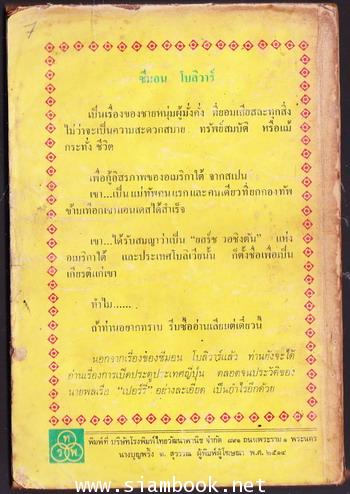 www.siambook.net
7
ซีมอน โบลิวาร์
เป็นเรื่องของชายหนุ่มผู้มั่งคั่ง ที่ยอมเสียสละทุกสิ่ง
ไม่ว่าจะเป็นความสะดวกสบาย ทรัพย์สมบัติ หรือแม้
กระทั่ง ชีวิต
เพื่อกู้อิสรภาพของอเมริกาใต้ จากสเปน
เขา...เป็นแม่ทัพคนแรกและคนเดียวที่ยกกองทัพ
ข้ามเทือกเขาแอนเดสได้สำเร็จ
เขา...ได้รับสมญาว่าเป็น “ยอร์ช วอชิงตัน” แห่ง
อเมริกาใต้ และประเทศโบลิเวียนั้น ก็ตั้งชื่อเพื่อเป็น
เกียรติแก่เขา
ทำไม......
ถ้าท่านอยากทราบ รีบซื้ออ่านเสียแต่เดี๋ยวนี้
นอกจากเรื่องของซีมอน โบลิวาร์แล้ว ท่านยังจะได้
อ่านเรื่องการเปิดประตูประเทศญี่ปุ่น ตลอดจนประวัติของ
นายพลเรือ “เปอร์รี่” อย่างละเอียด เป็นกำไรอีกด้วย
ท
ว พ
พิมพ์ที่ บริษัทโรงพิมพ์ไทยวัฒนาพานิช จำกัด ๘๙๑ ถนนพระราม ๑ พระนคร
นางบุญพริ้ง ต. สุวรรณ ผู้พิมพ์ผู้โฆษณา พ.ศ. ๒๕๑๔
www.siambook.net